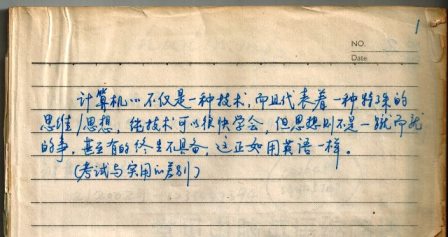 1
NO.
Date
计算机㈠不仅是一种技术，而且代表着一种特殊的
思维/思想，纯技术可以很快学会，但思想则不是一蹴而就
的事，甚至有的终生不具备，这正如用英语一样。
（考试与实用的差别）